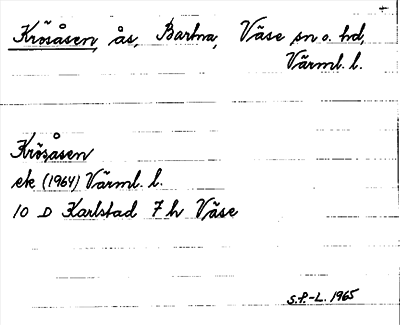 Krösåsen, ås, Bartna, Väse sn o. hd,
Värml. l.
Krösåsen
ek (1964) Värml. l.
10 D Karlstad 7 h Väse
S.P-L. 1965